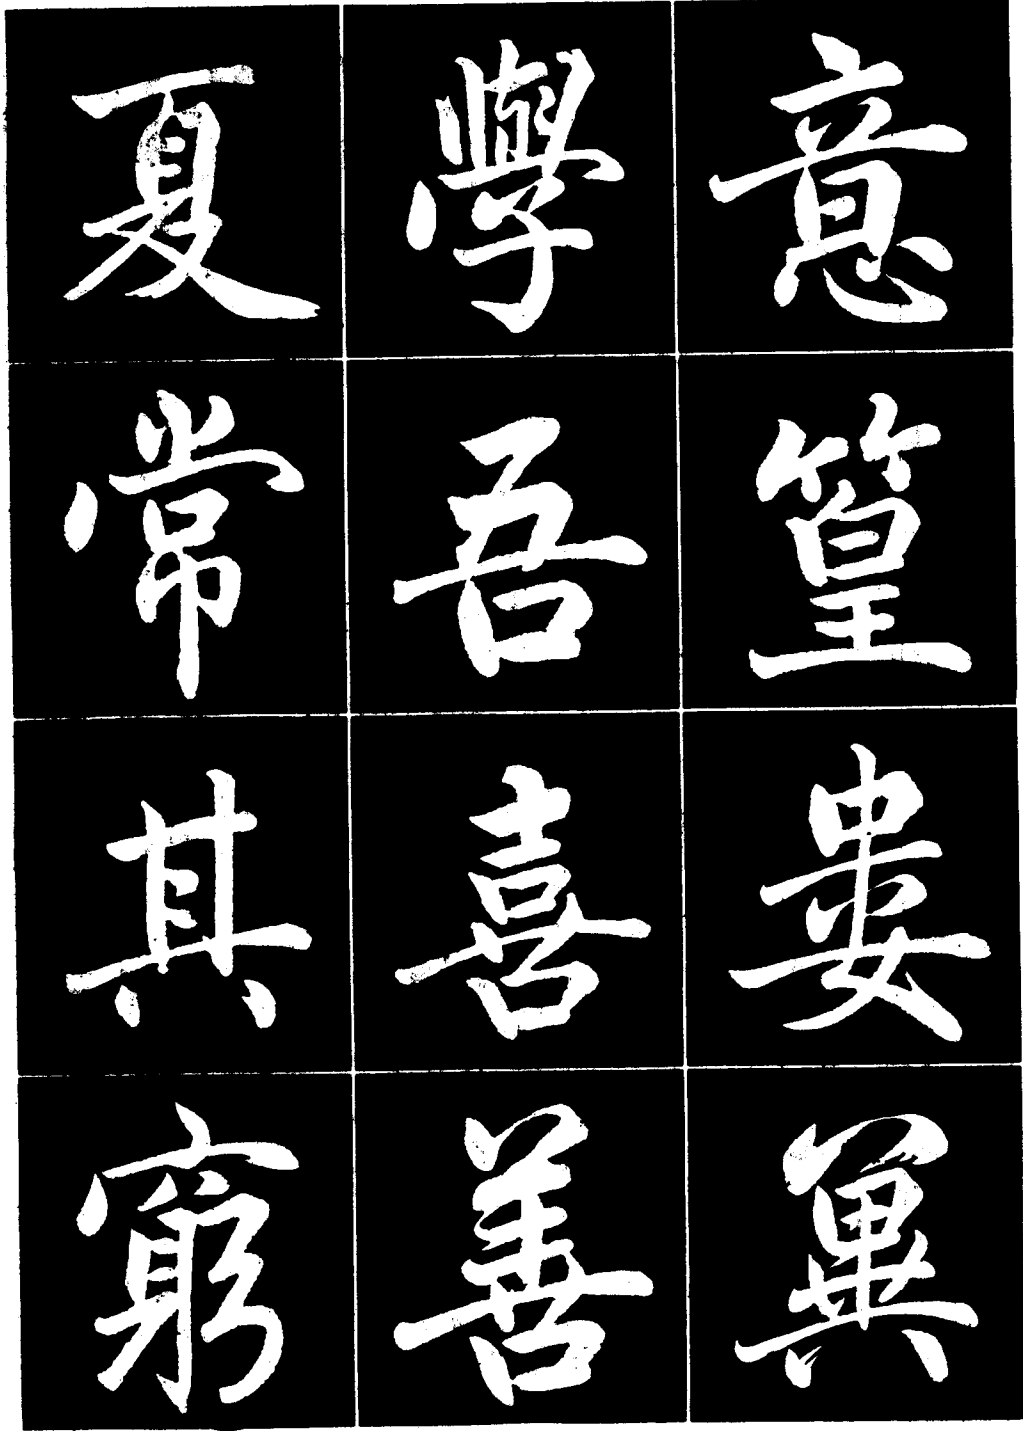 意篁婁
學吾喜善
夏常其窮